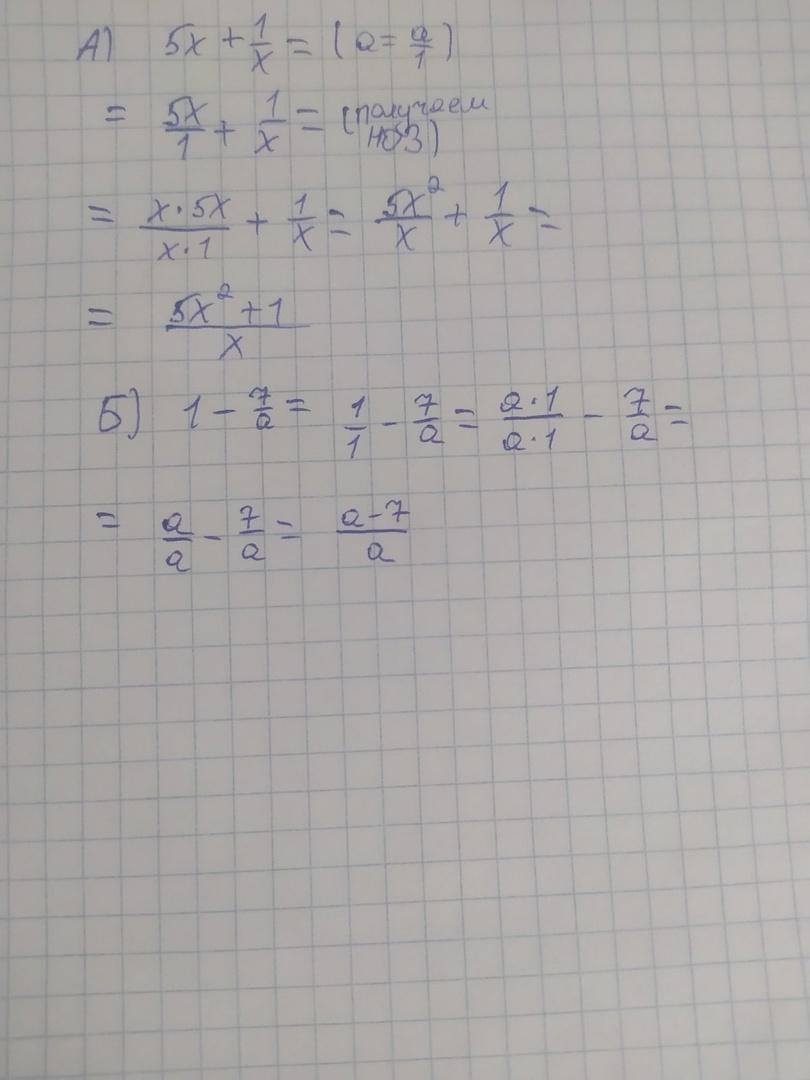 А) 5x + 1/x = (a = a/1)
= 5x/1 + 1/x = (получаем НОЗ)
= x·5x/x·1 + 1/x = 5x²/x + 1/x =
= 5x²+1/x
Б) 1 - 7/a = 1/1 - 7/a = a·1/a·1 - 7/a =
= a/a - 7/a = a-7/a